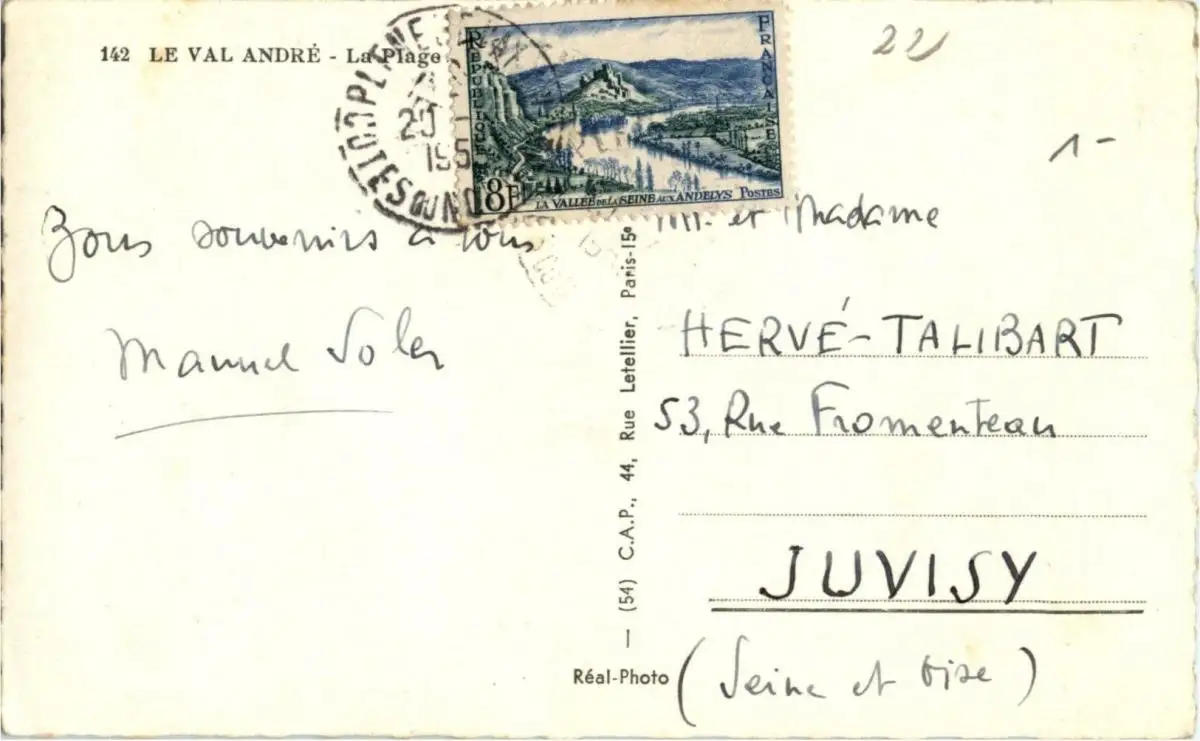 142 LE VAL ANDRÉ - La Plage
RÉPUBLIQUE
FRANÇAISE
18F
LA VALLÉE DE LA SEINE AUX ANDELYS POSTES
PLENE
20
195
COTES DU NORD
22
1-
Bons souvenirs à tous
Manuel Soler
M. et Madame
HERVÉ-TALIBART
53, Rue Fromenteau
JUVISY
(Seine et Oise)
— (54) C.A.P., 44, Rue Letellier, Paris-15e
Réal-Photo